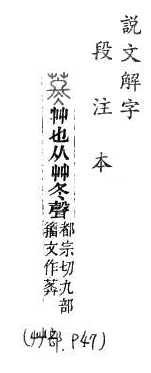 説文解字
段注本
苳 艸也从艸冬聲
都宗切九部
籒文作
(艸部. P47)